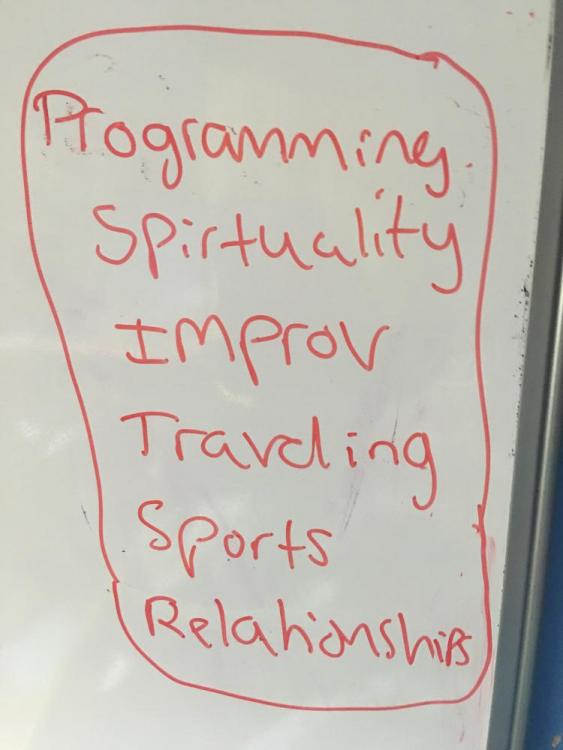 Programming
Spirtuality
Improv
Traveling
Sports
Relationships